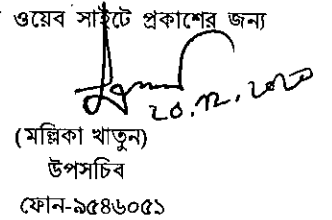 ওয়েব সাইটে প্রকাশের জন্য
২০.১২.২০২০
(মল্লিকা খাতুন)
উপসচিব
ফোন-৯৫৪৬০৫১